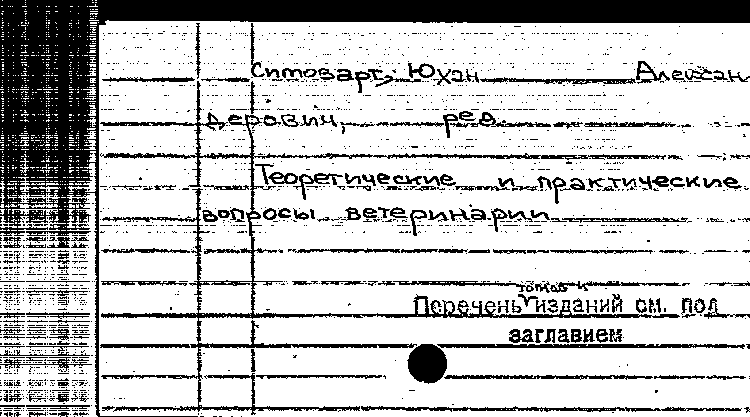 Симоварт, Юхан Алексан
дерович, ред.
Теоретические и практические
вопросы ветеринарии
томов и
Перечень изданий см. под
заглавием